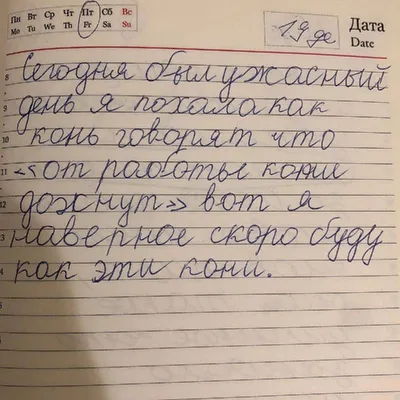 Пн Вт Ср Чт Пт Сб Вс
Mo Tu We Th Fr Sa Su
19 де
Дата
Date
8 Сегодня был ужасный
9 день я похала как
10 конь говорят что
11 «от работы кони
12 дохнут» вот я
наверное скоро буду
как эти кони.